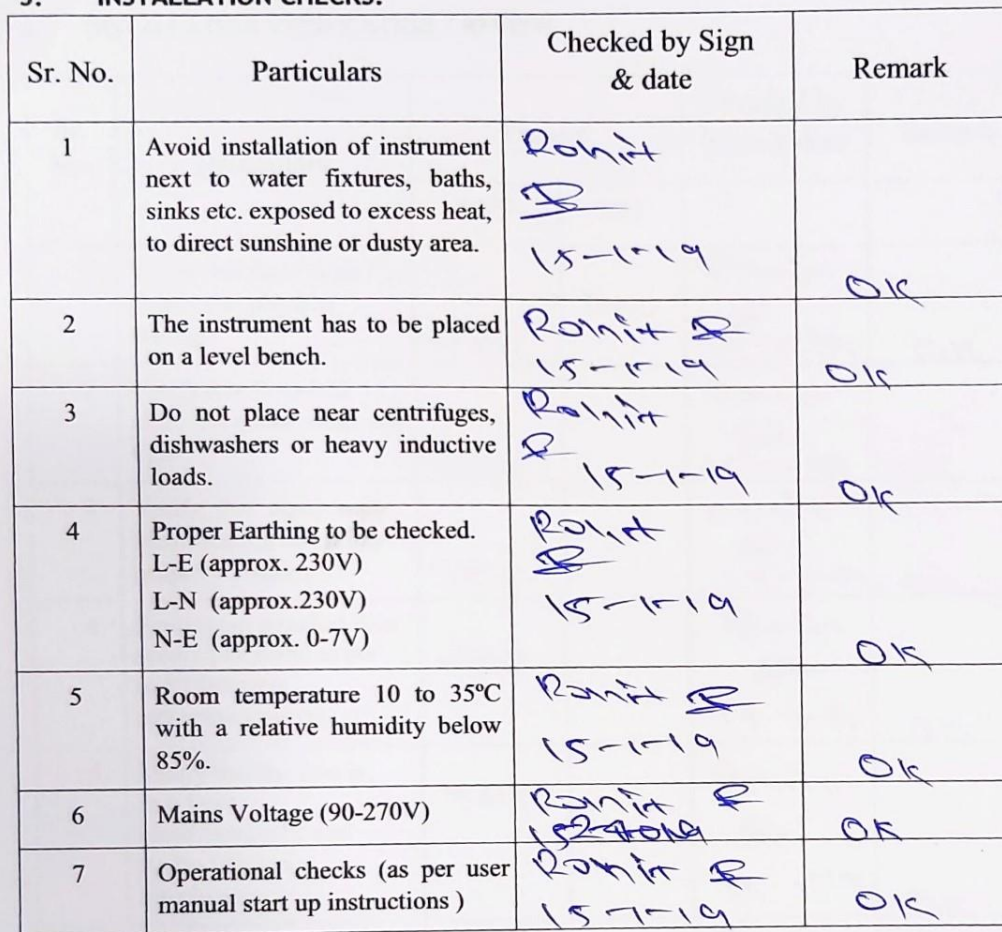 INSTALLATION CHECKS:
Sr. No. Particulars Checked by Sign & date Remark
1 Avoid installation of instrument Ronit
next to water fixtures, baths,
sinks etc. exposed to excess heat,
to direct sunshine or dusty area.
15-1-19
OK
2 The instrument has to be placed Ronit
on a level bench. 15-1-19 OK
3 Do not place near centrifuges, Ronit
dishwashers or heavy inductive
loads. 15-1-19 OK
4 Proper Earthing to be checked. Ronit
L-E (approx. 230V)
L-N (approx.230V) 15-1-19
N-E (approx. 0-7V) OK
5 Room temperature 10 to 35ºC Ronit
with a relative humidity below 15-1-19
85%. OK
6 Mains Voltage (90-270V) Ronit OK
7 Operational checks (as per user Ronit
manual start up instructions ) 15-1-19 OK